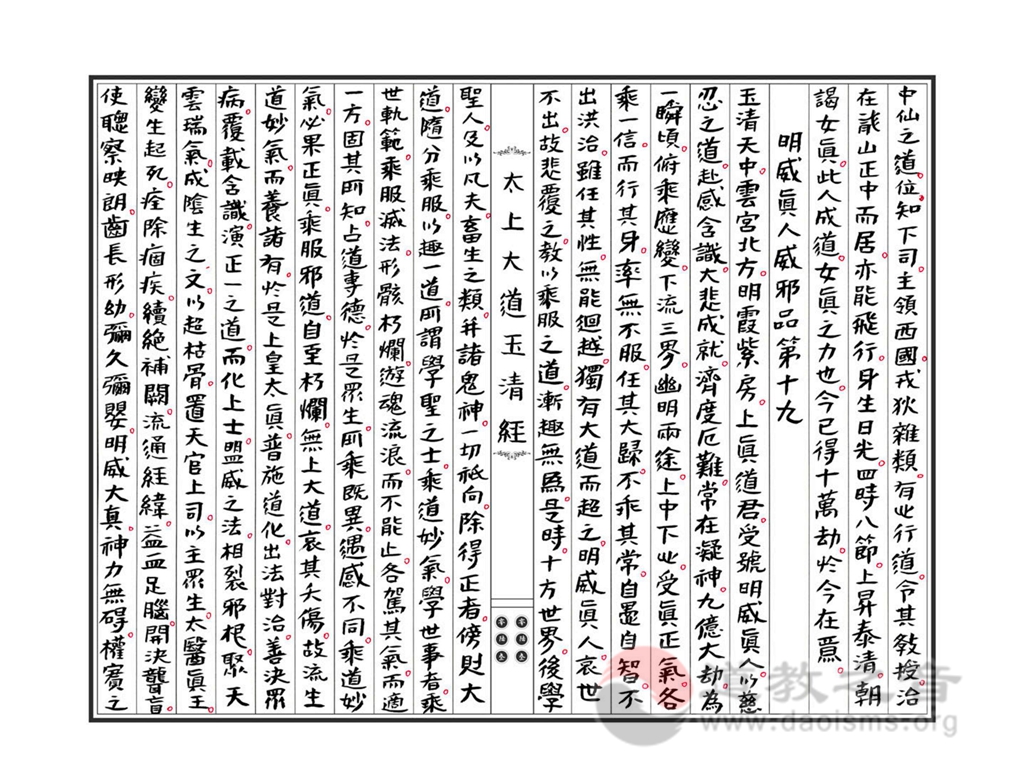 中仙之道。位知下司。主領西國。戎狄雜類。有心行道。令其教授。治
在嵗山正中而居。亦能飛行。身生日光。四時八節。上昇泰清。朝
謁女眞。此人成道。女眞之力也。今已得十萬劫。於今在焉。
明威眞人威邪品第十九
玉清天中。雲宮北方。明霞紫房。上眞道君。受號明威眞人。以慈
忍之道。赴感含識。大悲成就。濟度厄難。常在凝神。九億大劫。為
一瞬頃。俯乘應變。下流三界。幽明兩途。上中下心。受眞正氣。各
乘一信。而行其身。率無不服。任其大歸。不乖其常。自愚自智。不
出洪治。雖任其性。無能迴越。獨有大道而超之。明威眞人。哀世
不出。故悲覆之教。以乘服之道。漸趣無爲。是時。十方世界。後學
太上大道玉清經
聖人。及以凡夫畜生之類。并諸鬼神。一切祇向。除得正者。傍財大
道。隨分乘服。以趣一道。所謂學聖之士。乘道妙氣。學世事者。乘
世軌範。乘服滅法。形骸朽爛。遊魂流浪。而不能止。各駕其氣。而適
一方。固其所知。占道專德。於是眾生。所乘既異。遇感不同。乘道妙
氣。必果正眞。乘服邪道。自至朽爛。無上大道。哀其夭傷。故流生
道妙氣。而養諸有。於是上皇太眞。普施道化。出法對治。善決眾
病。覆載含識。演正一之道。而化上士。盟威之法。相裂邪根。聚天
雲瑞氣。成陰生之文。以超枯骨。置天官上司。以主眾生。太醫眞王。
變生起死。痊除痼疾。續絕補闕。流通經緯。益血足腦。開決聾盲。
使聰察映朗。齒長形幼。彌久彌嬰。明威大真。神力無碍。權賓之
道教之音
www.daoisms.org